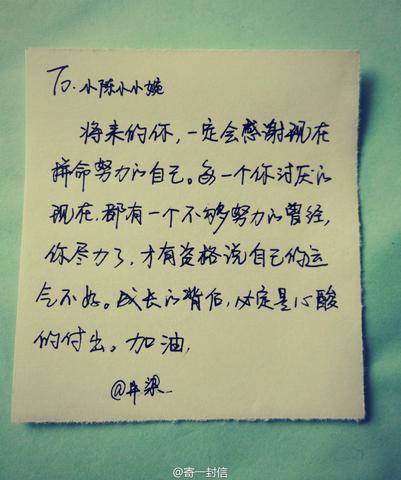 To. 小陈小小婉
将来的你,一定会感谢现在
拼命努力的自己。每一个你讨厌的
现在,都有一个不够努力的曾经,
你尽力了,才有资格说自己的运
气不好。成长的背后,必定是心酸
的付出。加油,
@井梁
@寄一封信